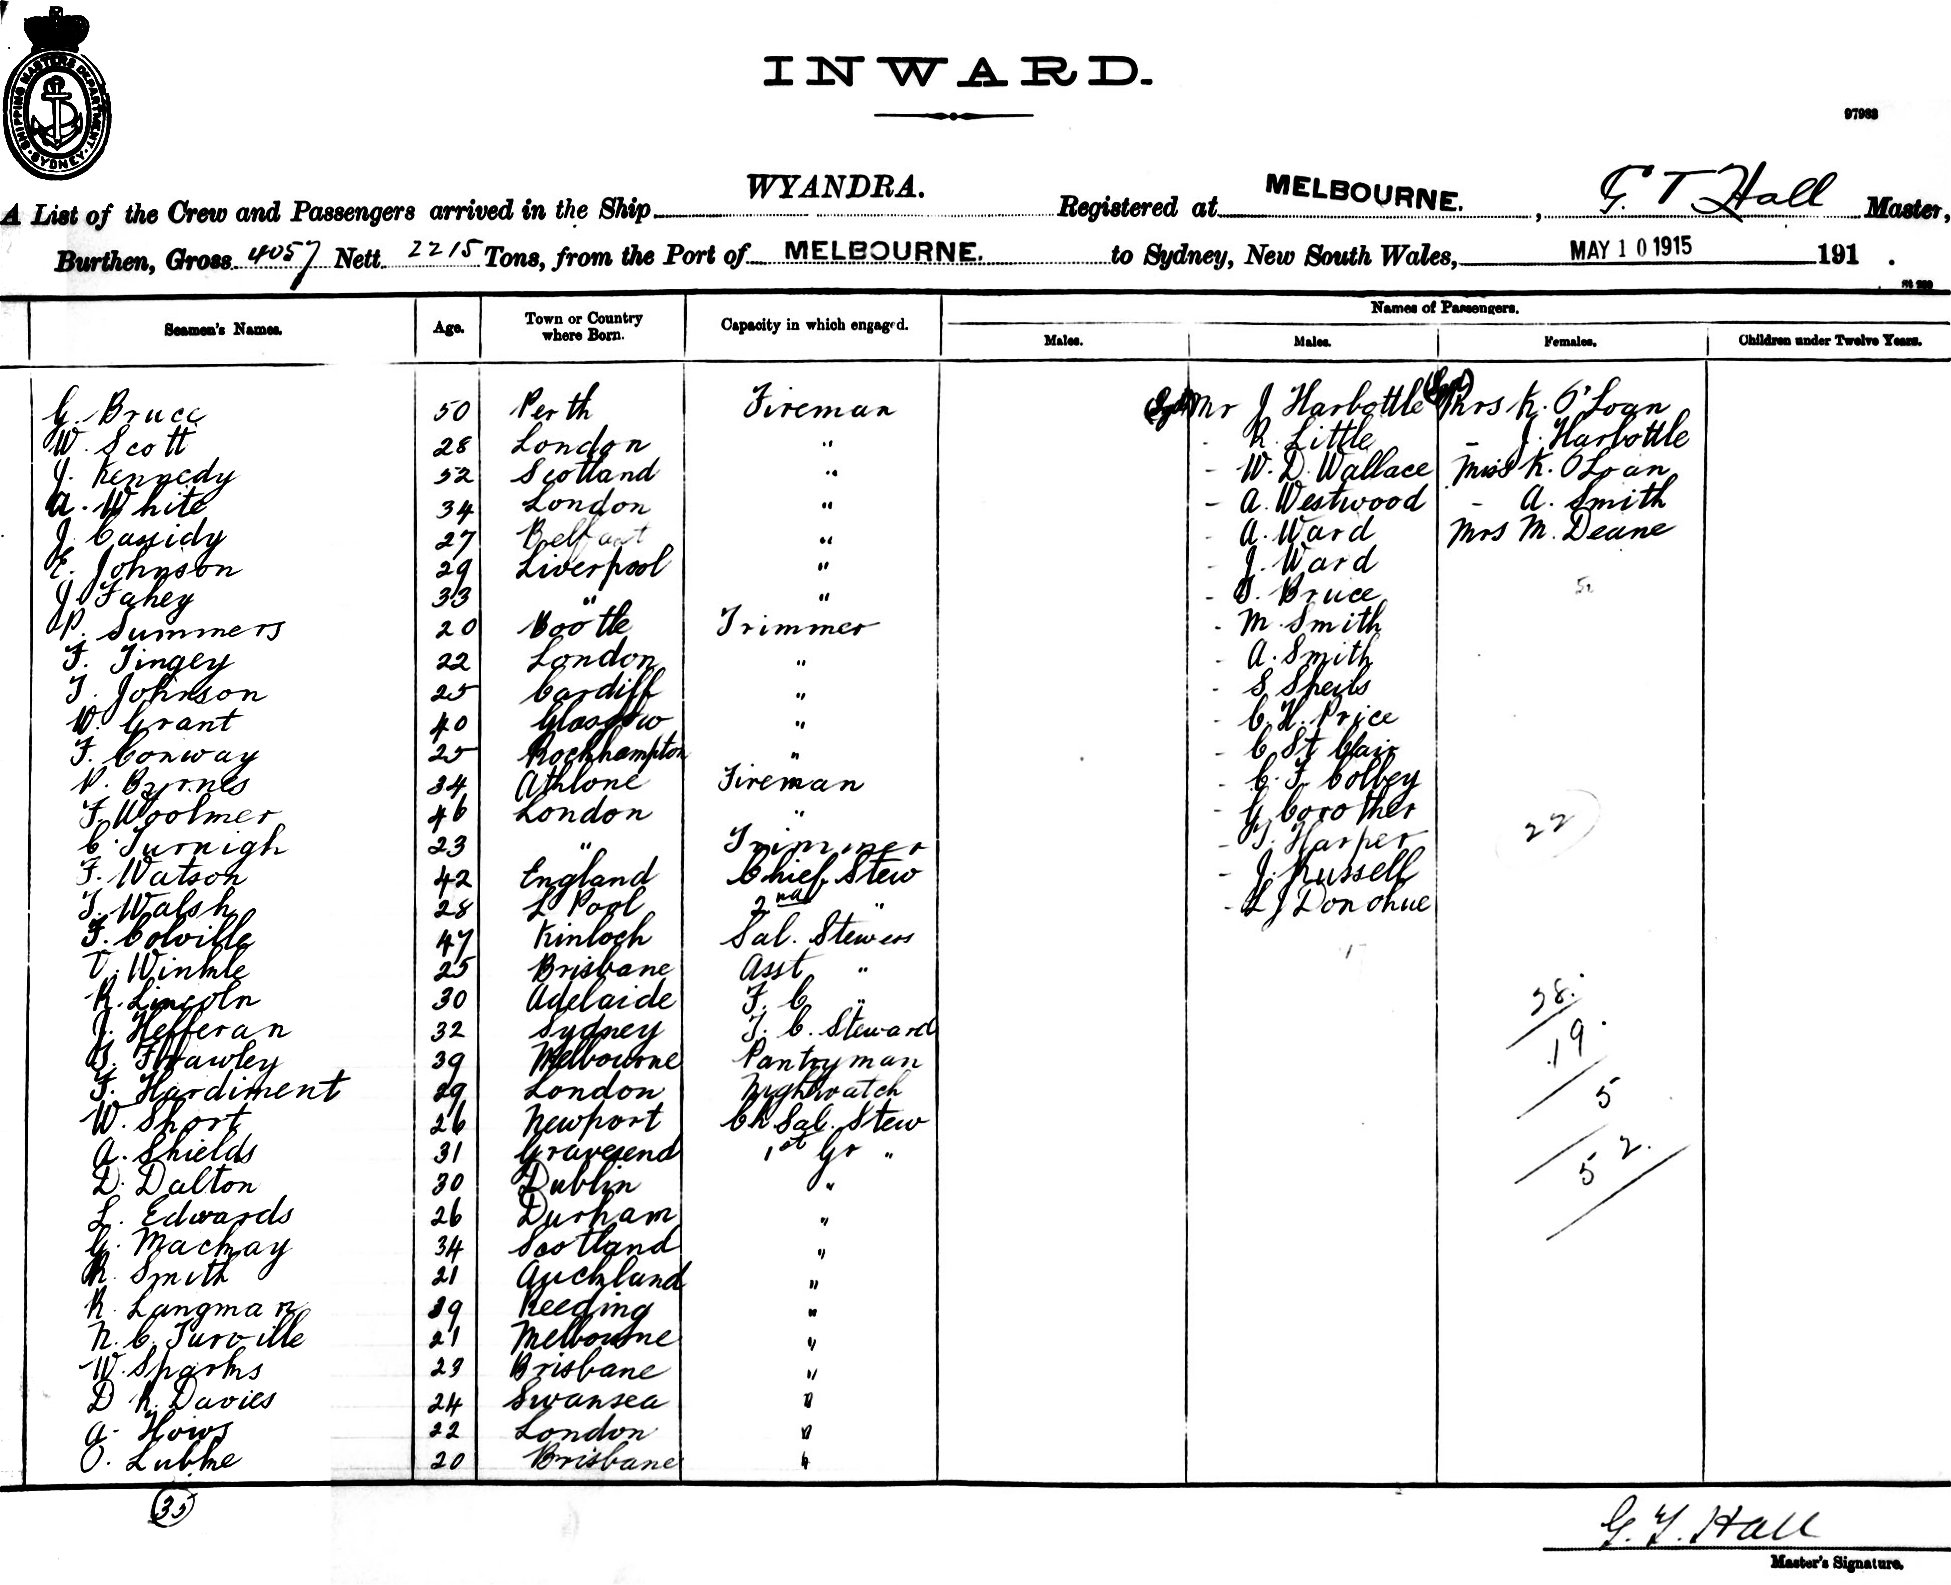 SHIPPING MASTERS DEPARTMENT SYDNEY
INWARD.
97983
A List of the Crew and Passengers arrived in the Ship WYANDRA. Registered at MELBOURNE., G. T Hall Master,
Burthen, Gross 4057 Nett 2215 Tons, from the Port of MELBOURNE. to Sydney, New South Wales, MAY 10 1915 191 .
Names of Passengers.
Seamen's Names. Age. Town or Country where Born. Capacity in which engaged. Males. Males. Females. Children under Twelve Years.
G. Bruce 50 Perth Fireman Mr J Harbottle Mrs K. O'Loan
W. Scott 28 London " - R. Little - J. Harbottle
J. Kennedy 52 Scotland " - W. D. Wallace Miss K. O'Loan
A. White 34 London " - A. Westwood - A. Smith
J. Cassidy 27 Belfast " - A. Ward Mrs M. Deane
E. Johnson 29 Liverpool " - J. Ward
J. Fahey 33 " " - T. Bruce 5
P. Summers 20 Bootle Trimmer - M. Smith
F. Tingey 22 London " - A. Smith
T. Johnson 25 Cardiff " - S Sheils
W. Grant 40 Glasgow " - C. H. Price
F. Conway 25 Rockhampton " - C. St Clair
P. Byrnes 34 Athlone Fireman - C. F. Colbey
F. Woolmer 46 London " - G Corother
C. Turnigh 23 " Trimmer - T. Harper 22
F. Watson 42 England Chief Stew - J. Russell
T. Walsh 28 L Pool 2nd " - L J Donohue
F. Colville 47 Kinloch Sal. Stewess
V. Winkle 25 Brisbane Asst " 17
R. Lincoln 30 Adelaide F. C "
J. Hefferan 32 Sydney F. C. Steward 38.
T. Frawley 39 Melbourne Pantryman 19.
F. Hardiment 29 London Nightwatch 5
W. Short 26 Newport Ch Sal. Stew
A. Shields 31 Gravesend 1st Gr " 52.
D. Dalton 30 Dublin "
L. Edwards 26 Durham "
G. Mackay 34 Scotland "
R. Smith 21 Auckland "
R. Langman 39 Reeding "
N. C. Turville 21 Melbourne "
W. Sparks 23 Brisbane "
D R. Davies 24 Swansea "
A. Hows 22 London "
O. Lubke 20 Brisbane "
35
G. T. Hall
Master's Signature.